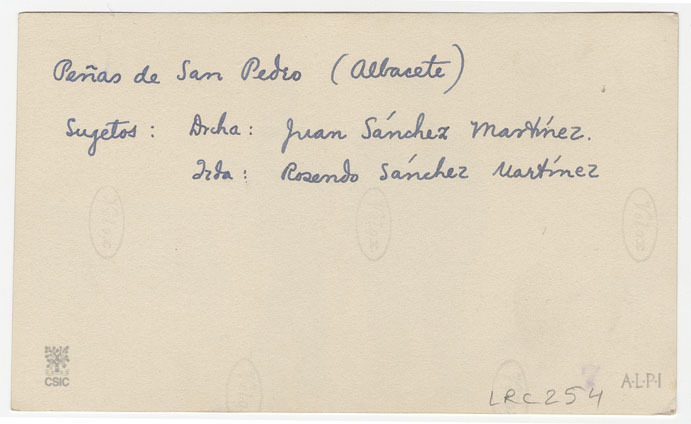 Peñas de San Pedro (Albacete)
Sujetos: Drcha: Juan Sánchez Martínez.
Izda: Rosendo Sánchez Martínez
CSIC
LRC254
A·L·P·I